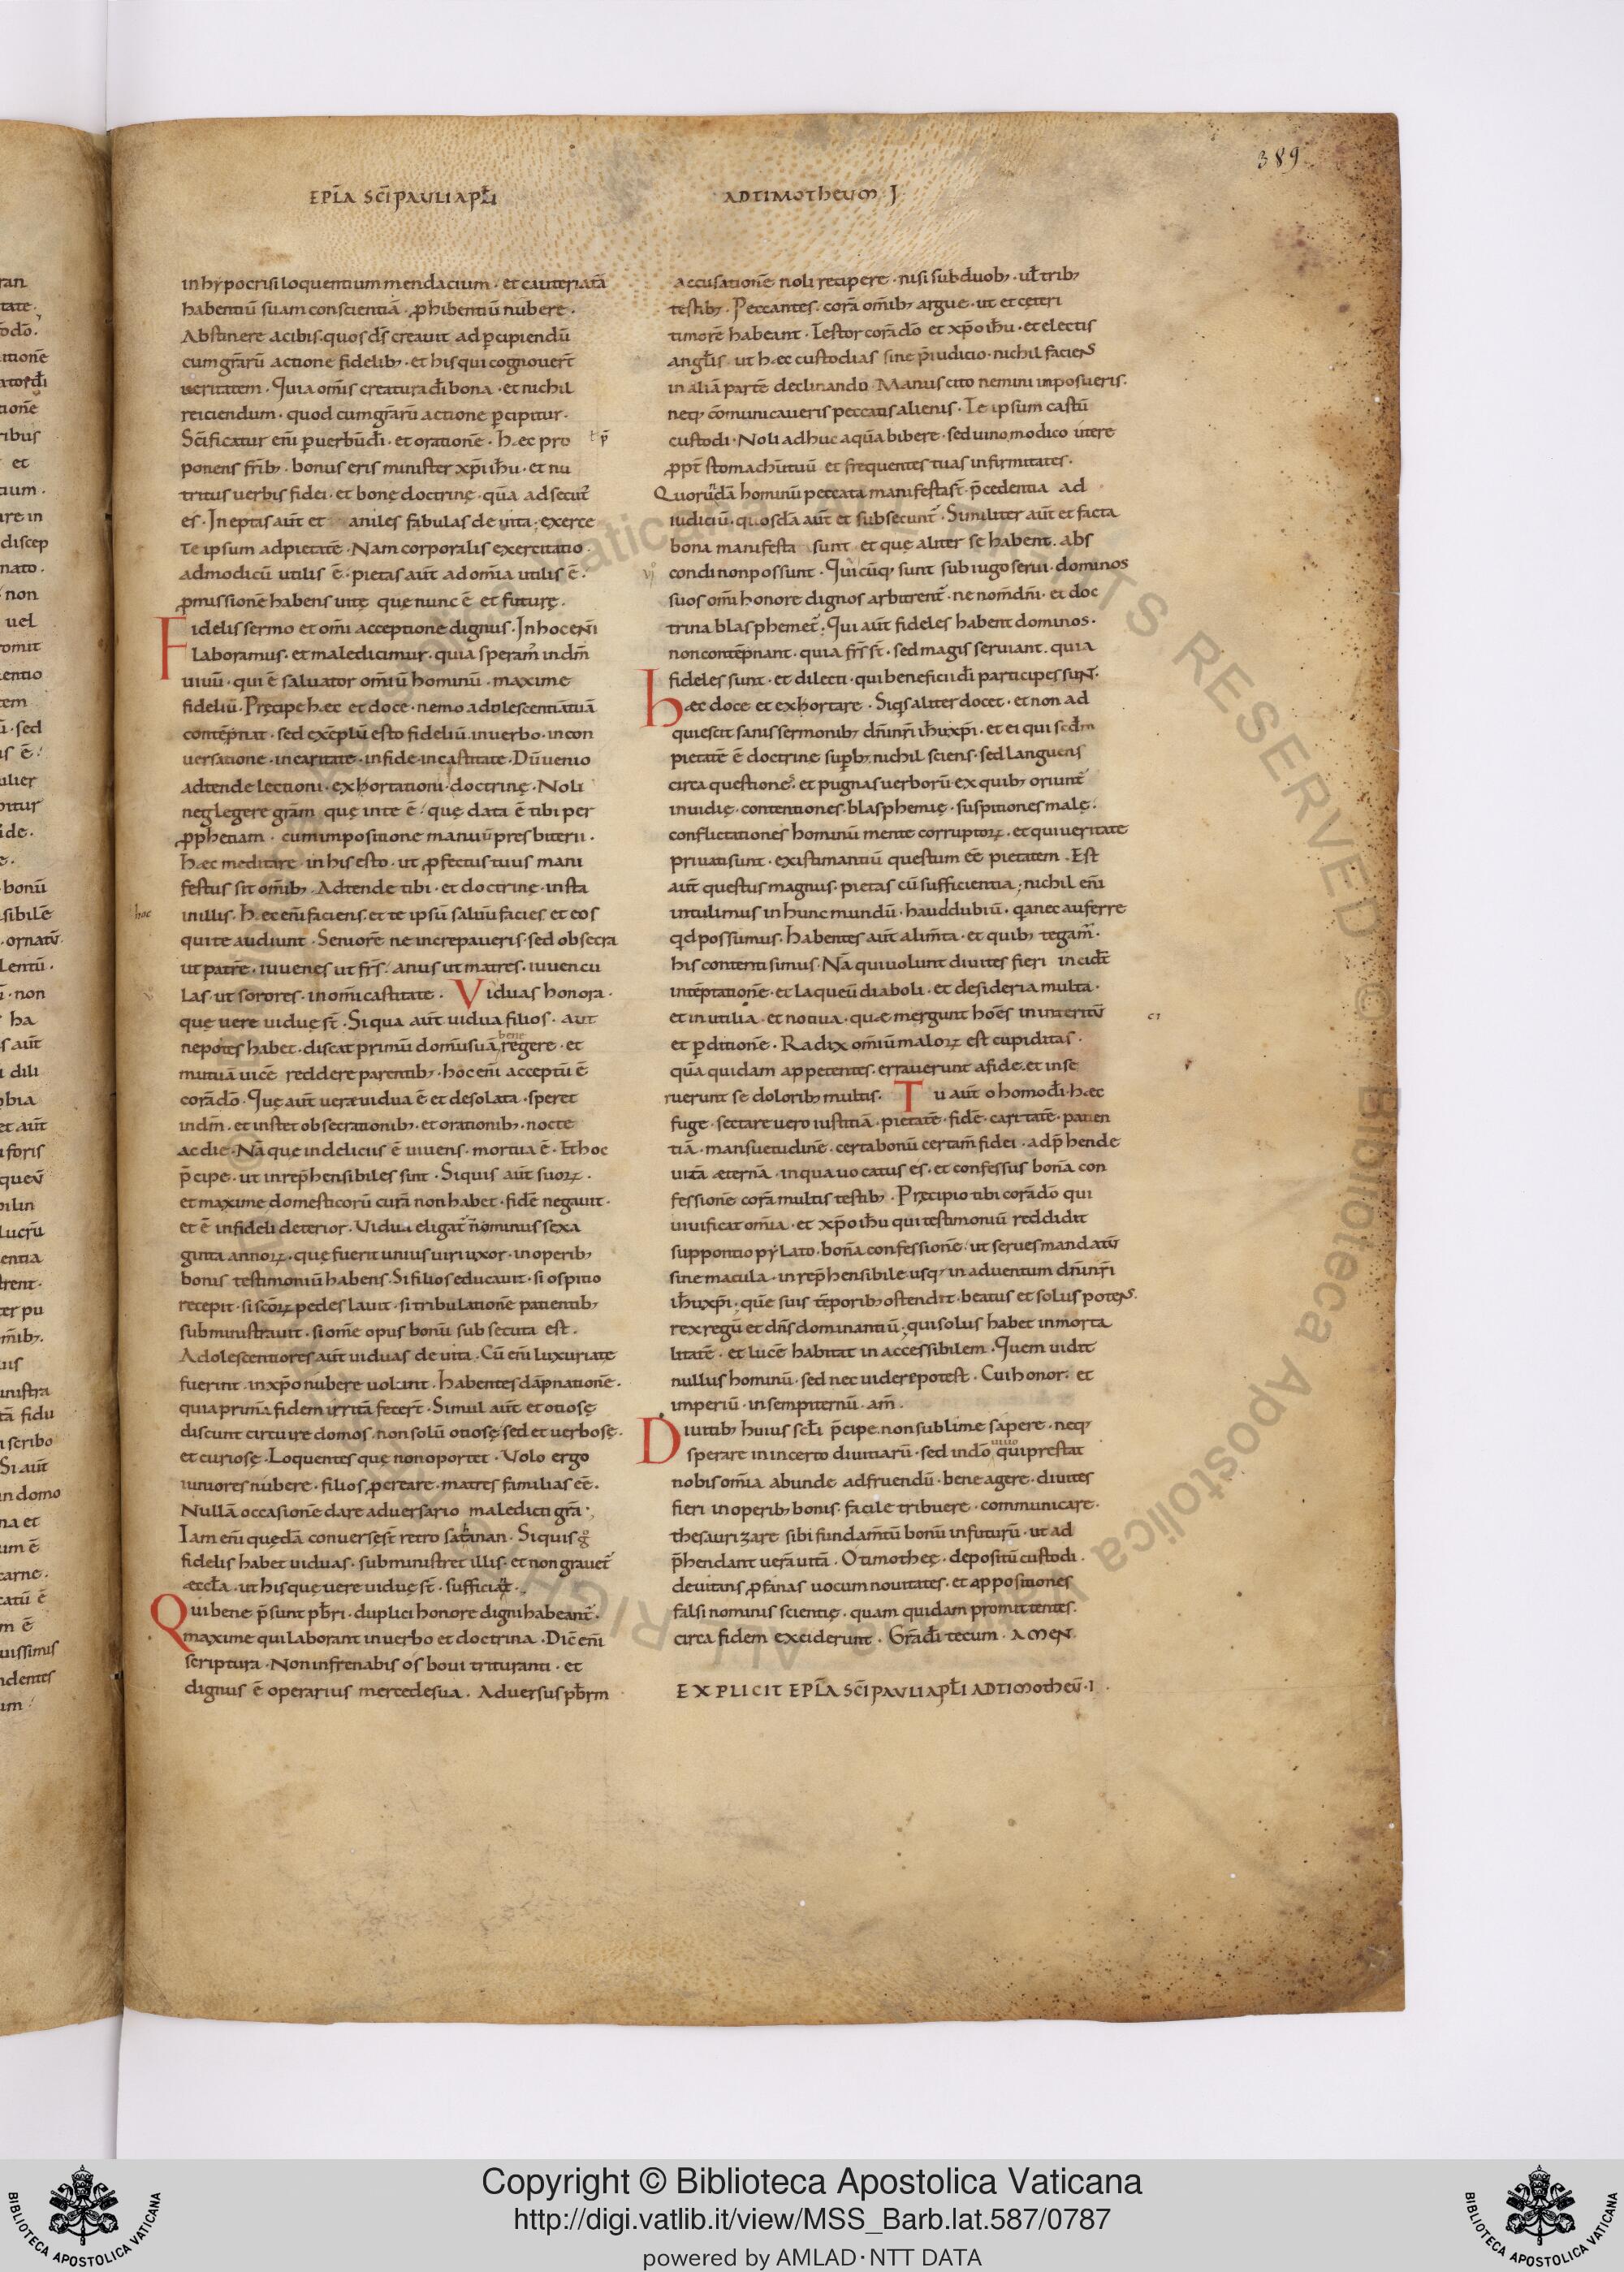 389
EPL̄A SC̄I PAULI APL̄I
AD TIMOTHEUM · I
in hypocrisi loquentium mendacium · et cauteriatā
habentiū suam conscientiā · ꝓhibentiū nubere ·
Abstinere a cibis · quos d̄s creavit ad p̄cipiendū
cum gr̄arū actione fidelib; · et his qui cognover̄t
veritatem · Quia om̄is creatura dī bona · et nichil
reiciendum · quod cum gr̄arū actione p̄cipitur ·
Sc̄ificatur eni ꝑ verbū dī · et orationē · hæc pro
ponens fr̄ib; · bonus eris minister xp̄i ih̄u · et nu
tritus verbis fidei · et bonę doctrinę · quā adsecut̄
es · Ineptas aūt et aniles fabulas devita · exerce
te ipsum ad pietatē · Nam corporalis exercitatio ·
ad modicū utilis ē · pietas aūt ad om̄ia utilis ē ·
ꝓmissionē habens vitę que nunc ē et futurę ·
Fidelis sermo et om̄i acceptione dignus · In hoc eni
laboramus · et maledicimur · quia speram̄ in dm̄
vivū · qui ē salvator om̄iū hominū · maxime
fideliū · Pręcipe hæc et doce · nemo adolescentiā tuā
contēpnat · sed exēplū esto fideliū · in verbo · in con
versatione · in caritate · in fide · in castitate · Dū venio
adtende lectioni · exhortationi · doctrinę · Noli
neglegere gr̄am quę in te ē · quę data ē tibi per
ꝓphetiam · cum impositione manuū presbiterii ·
hæc meditare · in his esto · ut ꝓfectus tuus mani
festus sit om̄ib; · Adtende tibi · et doctrinę · insta
hoc
in illis · hec eni faciens · et te ipsū salvū facies et eos
qui te audiunt · Seniorē ne increpaveris · sed obsecra
ut patrē · iuvenes ut fr̄s · anus ut matres · iuvencu
las · ut sorores · in om̄i castitate · Viduas honora ·
quę vere viduę st̄ · Si qua aūt vidua filios · aut
nepotes habet · discat primū domū suā bene regere · et
mutuā vicē reddere parentib; · hoc eni acceptū ē
corā dō · Quę aūt veræ vidua ē et desolata · speret
in dm̄ · et instet obsecrationib; · et orationib; · nocte
ac die · Nā que in deliciis ē vivens · mortua ē · Et hoc
p̄cipe · ut inrep̄hensibiles sint · Siquis aūt suoꝝ ·
et maxime domesticorū curā non habet · fidē negavit ·
et ē infideli deterior · Vidua eligat̄ n̄ ominus sexa
ginta annoꝝ · quę fuerit unius viri uxor · in operib;
bonis testimoniū habens · Si filios educavit · si ospitio
recepit · si sc̄oꝝ pedes lavit · si tribulationē patientib;
subministravit · si omē opus bonū subsecuta est ·
Adolescentiores aūt viduas devita · Cū eni luxuriatę
fuerint · in xp̄o nubere volunt · habentes dāpnationē ·
quia primā fidem irritā fecer̄t · Simul aūt et otiosę
discunt circuire domos · non solū otiosę · sed et verbosę ·
et curiosę · Loquentes quę non oportet · Volo ergo
iuniores nubere · filios ꝓcreare · matres familias eē ·
Nullā occasionē dare adversario maledicti gr̄a ·
Iam eni quędā conversę st̄ retro satanan · Siquis
fidelis habet viduas · subministret illis · et non gravet̄
eccl̄a · ut his que vere viduę st̄ · sufficiat ·
Qui bene p̄sunt pb̄ri · duplici honore digni habeant̄ ·
maxime qui laborant in verbo et doctrina · Dic̄ eni
scriptura · Non infrenabis os bovi trituranti · et
dignus ē operarius mercede sua · Adversus pb̄rm
accusationē noli recipere · nisi sub duob; · ul̄ trib;
testib; · Peccantes · corā om̄ib; argue · ut et cęteri
timorē habeant · Testor corā dō et xp̄o ih̄u · et electis
angl̄is · ut hæc custodias sine p̄iudicio · nichil faciens
in aliā partē declinando · Manus cito nemini imposueris ·
neq; cōmunicaveris peccatis alienis · Te ipsum castū
custodi · Noli adhuc aquā bibere · sed vino modico utere
ꝓpt̄ stomachū tuū et frequentes tuas infirmitates ·
Quorūdā hominū peccata manifesta st̄ · p̄cedentia ad
iudiciū · quosdā aūt et subsecunt̄ · Similiter aūt et facta
bona manifesta sunt et quę aliter se habent · abs
condi non possunt · Quicūq; sunt sub iugo servi · dominos
suos om̄i honore dignos arbitrent̄ · ne nom̄ dn̄i · et doc
trina blasphemet̄ · Qui aūt fideles habent dominos ·
non contēpnant · quia fr̄s st̄ · sed magis serviant · quia
fideles sunt · et dilecti · qui beneficii dī participes sunt ·
hæc doce et exhortare · Siqs aliter docet · et non ad
quiescit sanis sermonib; dn̄i nr̄i ih̄u xp̄i · et ei qui scdm̄
pietatē ē doctrine · supb; · nichil sciens · sed languens
circa questiones · et pugnas verborū · ex quib; oriunt̄
invidię · contentiones · blasphemię · suspitiones malę ·
conflictationes hominū mente corruptoꝝ · et qui veritate
privati sunt · existimantiū questum eē pietatem · Est
aūt questus magnus · pietas cū sufficientia · nichil eni
intulimus in hunc mundū · haud dubiū · qa nec auferre
qd possumus · habentes aūt alim̄ta · et quib; tegam̄ ·
his contenti simus · Nā qui volunt divites fieri incidt̄
in tēptationē · et laqueū diaboli · et desideria multa ·
et inutilia · et nociva · quæ mergunt hoēs in interitū
et pditionē · Radix om̄iū maloꝝ est cupiditas ·
quā quidam appetentes · erraverunt a fide · et inse
ruerunt se dolorib; multis · Tu aūt o homo dī · hæc
fuge · sectare vero iustitiā · pietatē · fidē · caritatē · patien
tiā · mansuetudinē · certa bonū certam̄ fidei · adp̄hende
vitā æternā · in qua vocatus es · et confessus bonā con
fessionē corā multis testib; · Pręcipio tibi corā dō qui
vivificat om̄ia · et xp̄o ih̄u qui testimoniū reddidit
sub pontio pylato · bonā confessionē · ut serves mandatū
sine macula · inrep̄hensibile usq; in adventum dn̄i nr̄i
ih̄u xp̄i · quē suis tēporib; ostendit · beatus et solus potens ·
rex regū et dn̄s dominantiū · qui solus habet inmorta
litatē · et lucē habitat inaccessibilem · Quem vidit
nullus hominū · sed nec videre potest · Cui honor · et
imperiū · in sempiternū · am̄ ·
Divitib; huius scl̄i p̄cipe · non sublime sapere · neq;
sperare in incerto divitiarū · sed in dō vivo qui prestat
nobis om̄ia abunde ad fruendū · bene agere · divites
fieri in operib; bonis · facile tribuere · communicare ·
thesaurizare sibi fundam̄tū bonū in futurū · ut ad
p̄hendant verā vitā · O timotheę · depositū custodi ·
devitans ꝓfanas vocum novitates · et appositiones
falsi nominis scientię · quam quidam promittentes ·
circa fidem exciderunt · Gr̄a dī tecum · AMEN ·
EXPLICIT EPL̄A SC̄I PAULI APL̄I AD TIMOTHEŪ · I ·
Copyright © Biblioteca Apostolica Vaticana
http://digi.vatlib.it/view/MSS_Barb.lat.587/0787
powered by AMLAD · NTT DATA
BIBLIOTECA APOSTOLICA VATICANA
BIBLIOTECA APOSTOLICA VATICANA